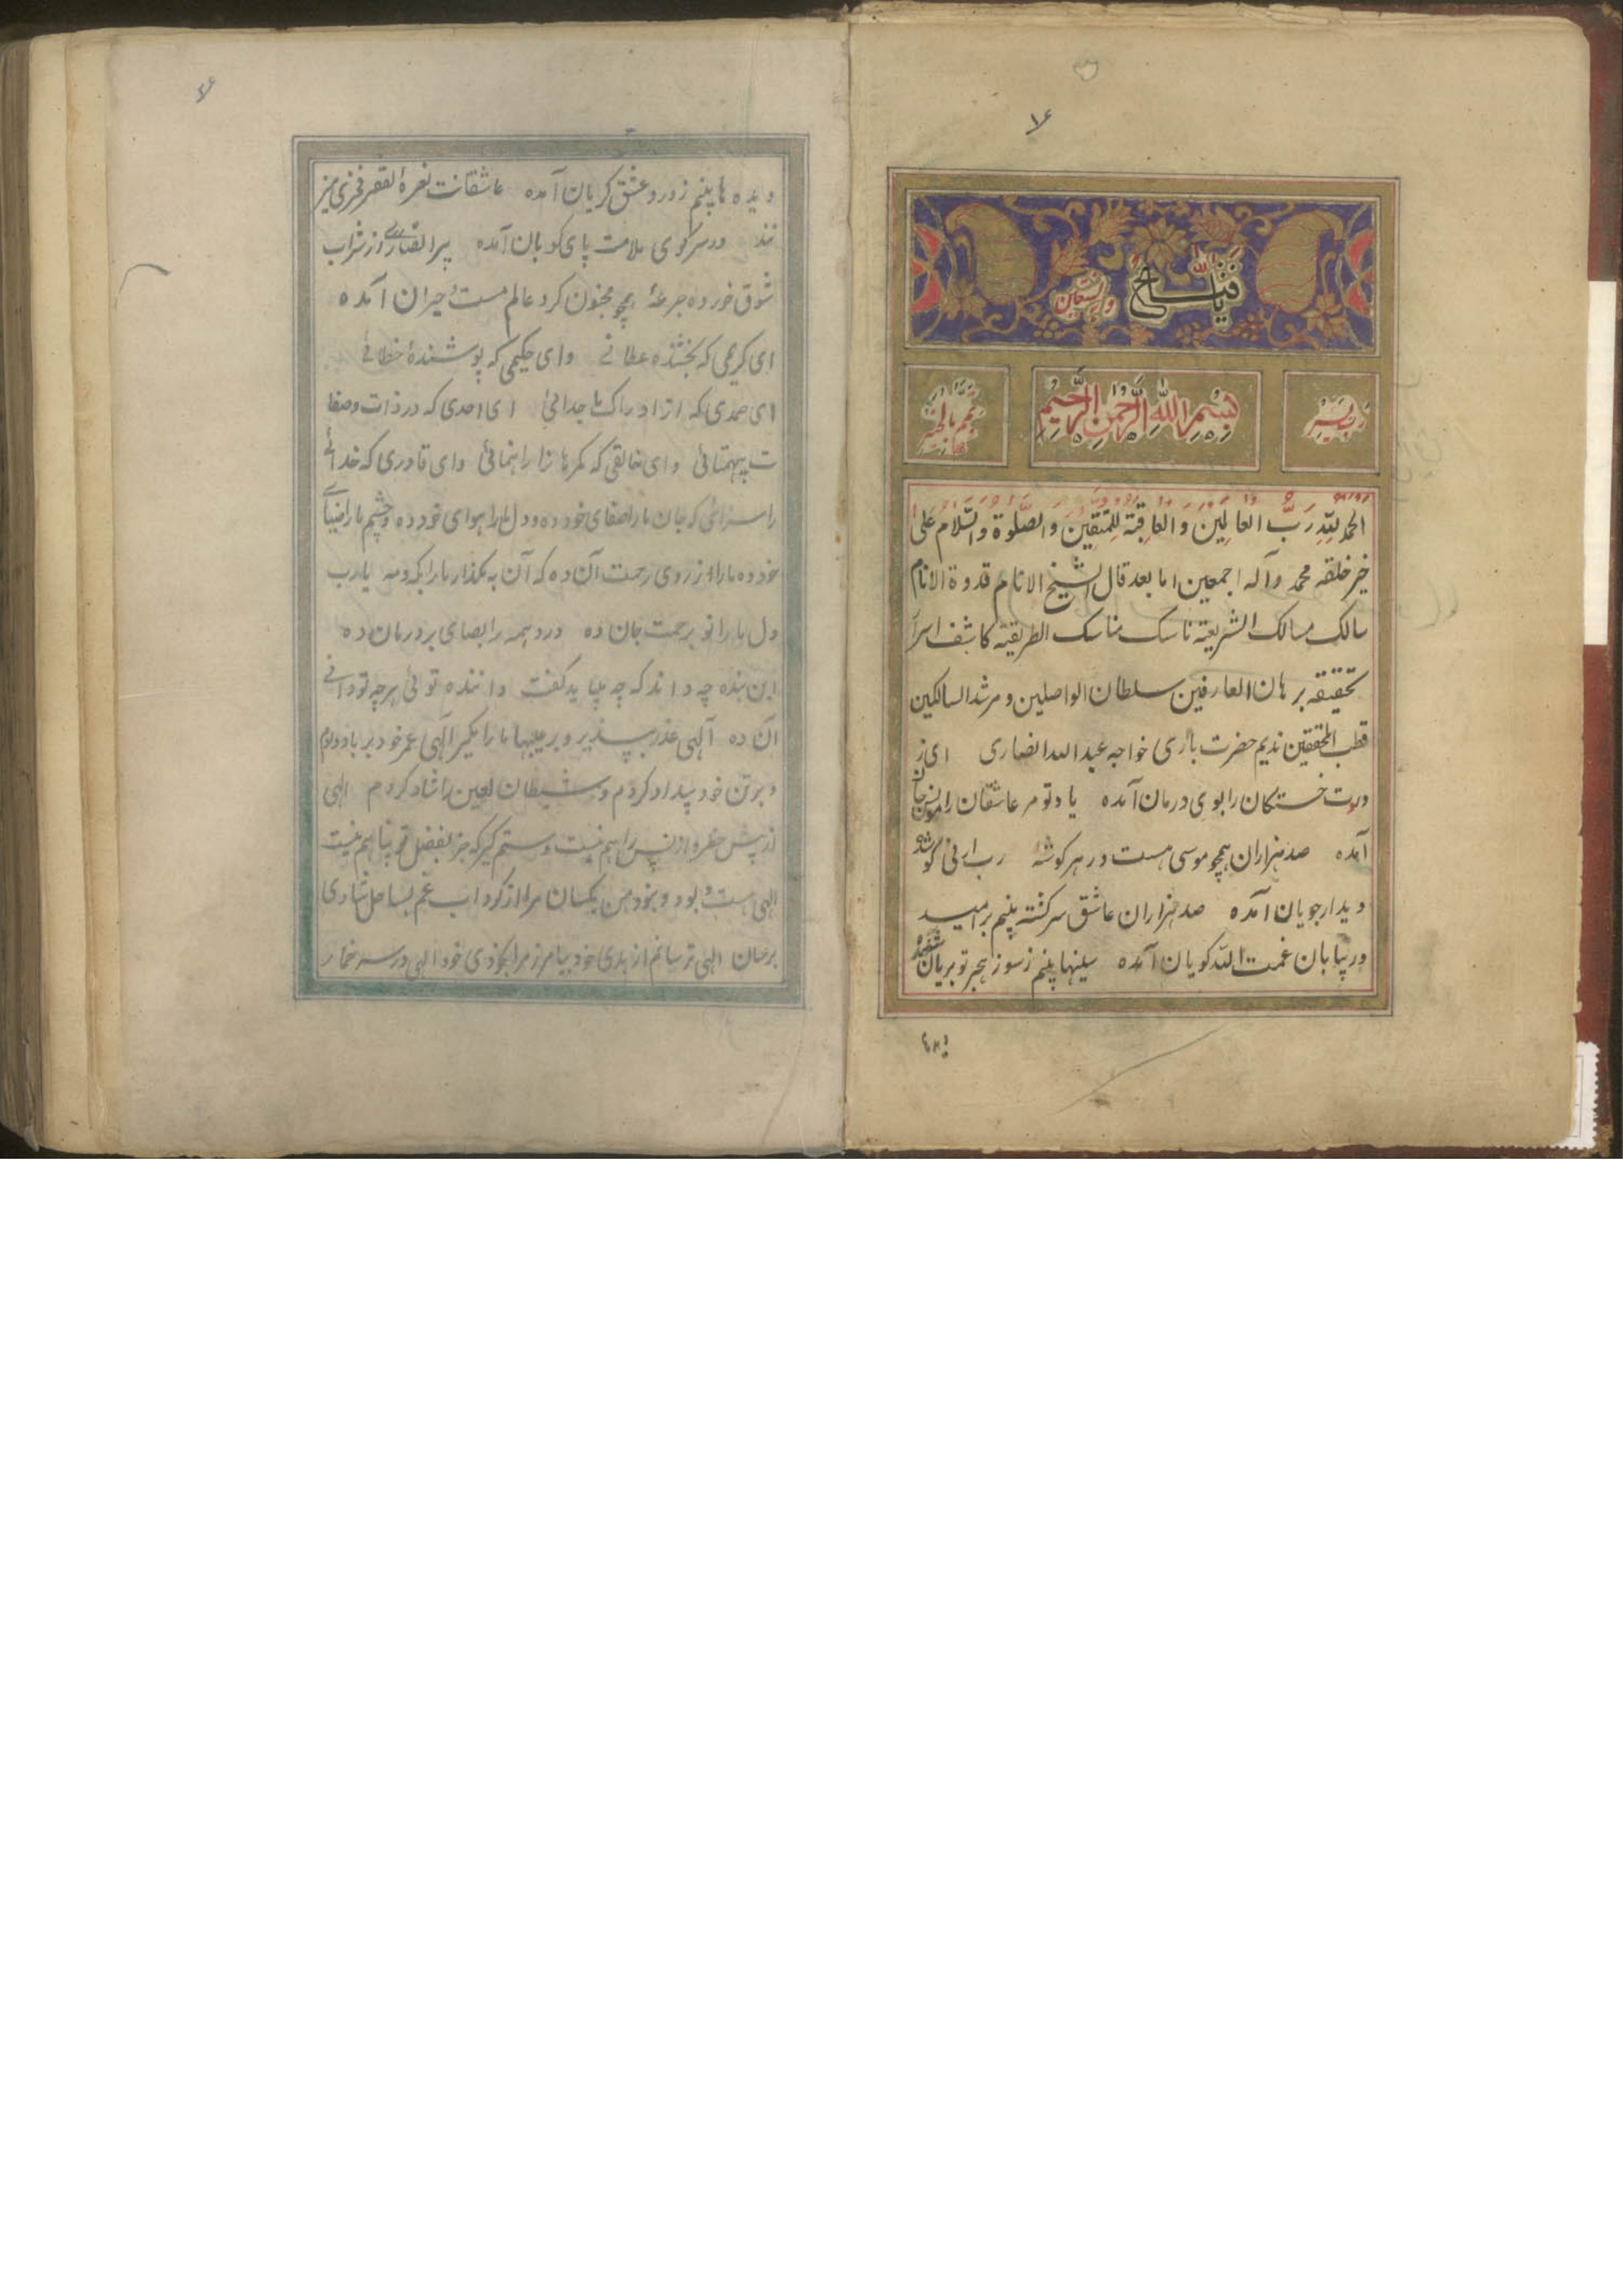 یا فتاح
وبه نستعین
رب یسر
بسم الله الرحمن الرحیم
تمم بالخیر
الحمد لله رب العالمین والعاقبة للمتقین والصلوة والسلام علی
خیر خلقه محمد وآله اجمعین اما بعد قال الشیخ الانام قدوة الانام
سالک مسالک الشریعة ناسک مناسک الطریقة کاشف اسرار
تحقیقه برهان العارفین سلطان الواصلین و مرشد السالکین
قطب المحققین ندیم حضرت باری خواجه عبدالله انصاری ای ز
دردت خستگان را بوی درمان آمده یاد تو مر عاشقان را مونس جان
آمده صد هزاران همچو موسی مست در هر کوشه رب ارنی کو شده
دیدار جویان آمده صد هزاران عاشق سرکشته بینم بر امید
در بیابان غمت الله کویان آمده سینها بینم ز سوز هجر تو بریان شده
دیده
دیده ها بینم ز درد عشق کریان آمده عاشقانت نعره الفقر فخری میز
نند در سر کوی ملامت پای کوبان آمده پیر انصاری از شراب
شوق خورده جرعهٔ همچو مجنون کرد عالم مست حیران آمده
ای کریمی که بخشنده عطائے وای حکیمی که پوشندهٔ خطائے
ای صمدی که از ادراک ما جدائی ای احدی که در ذات وصفا
ت بیهمتائی وای خالقی که کمرهانرا راهنمائی وای قادری که خدائے
را سزائی که جان ما را صفای خود ده و دل ما را هوای خود ده و چشم ما را ضیاے
خود ده ما را از روی رحمت آن ده که آن به مکذار ما را بکه و مه یارب
دل ما را تو برحمت جان ده درد همه را بصابری درمان ده
این بنده چه داند که چه میباید کفت داننده توئی هر چه تو دانے
آن ده آلهی عذر بپذیر و بر عیبها ما را مکیر آلهی عمر خود بر باد دادم
و بر تن خود بیداد کردم و شیطان لعین را شاد کردم الهی
از پیش خطر و از پس راهم نیست دستم کیر که جز بفضل تو پناهم نیست
الهی بود و نبود من یکسان مرا از کرداب غم بساحل شادی
برسان الهی ترسانم از بدی خود بیامرز مرا بخودی خود الهی در سر خمار